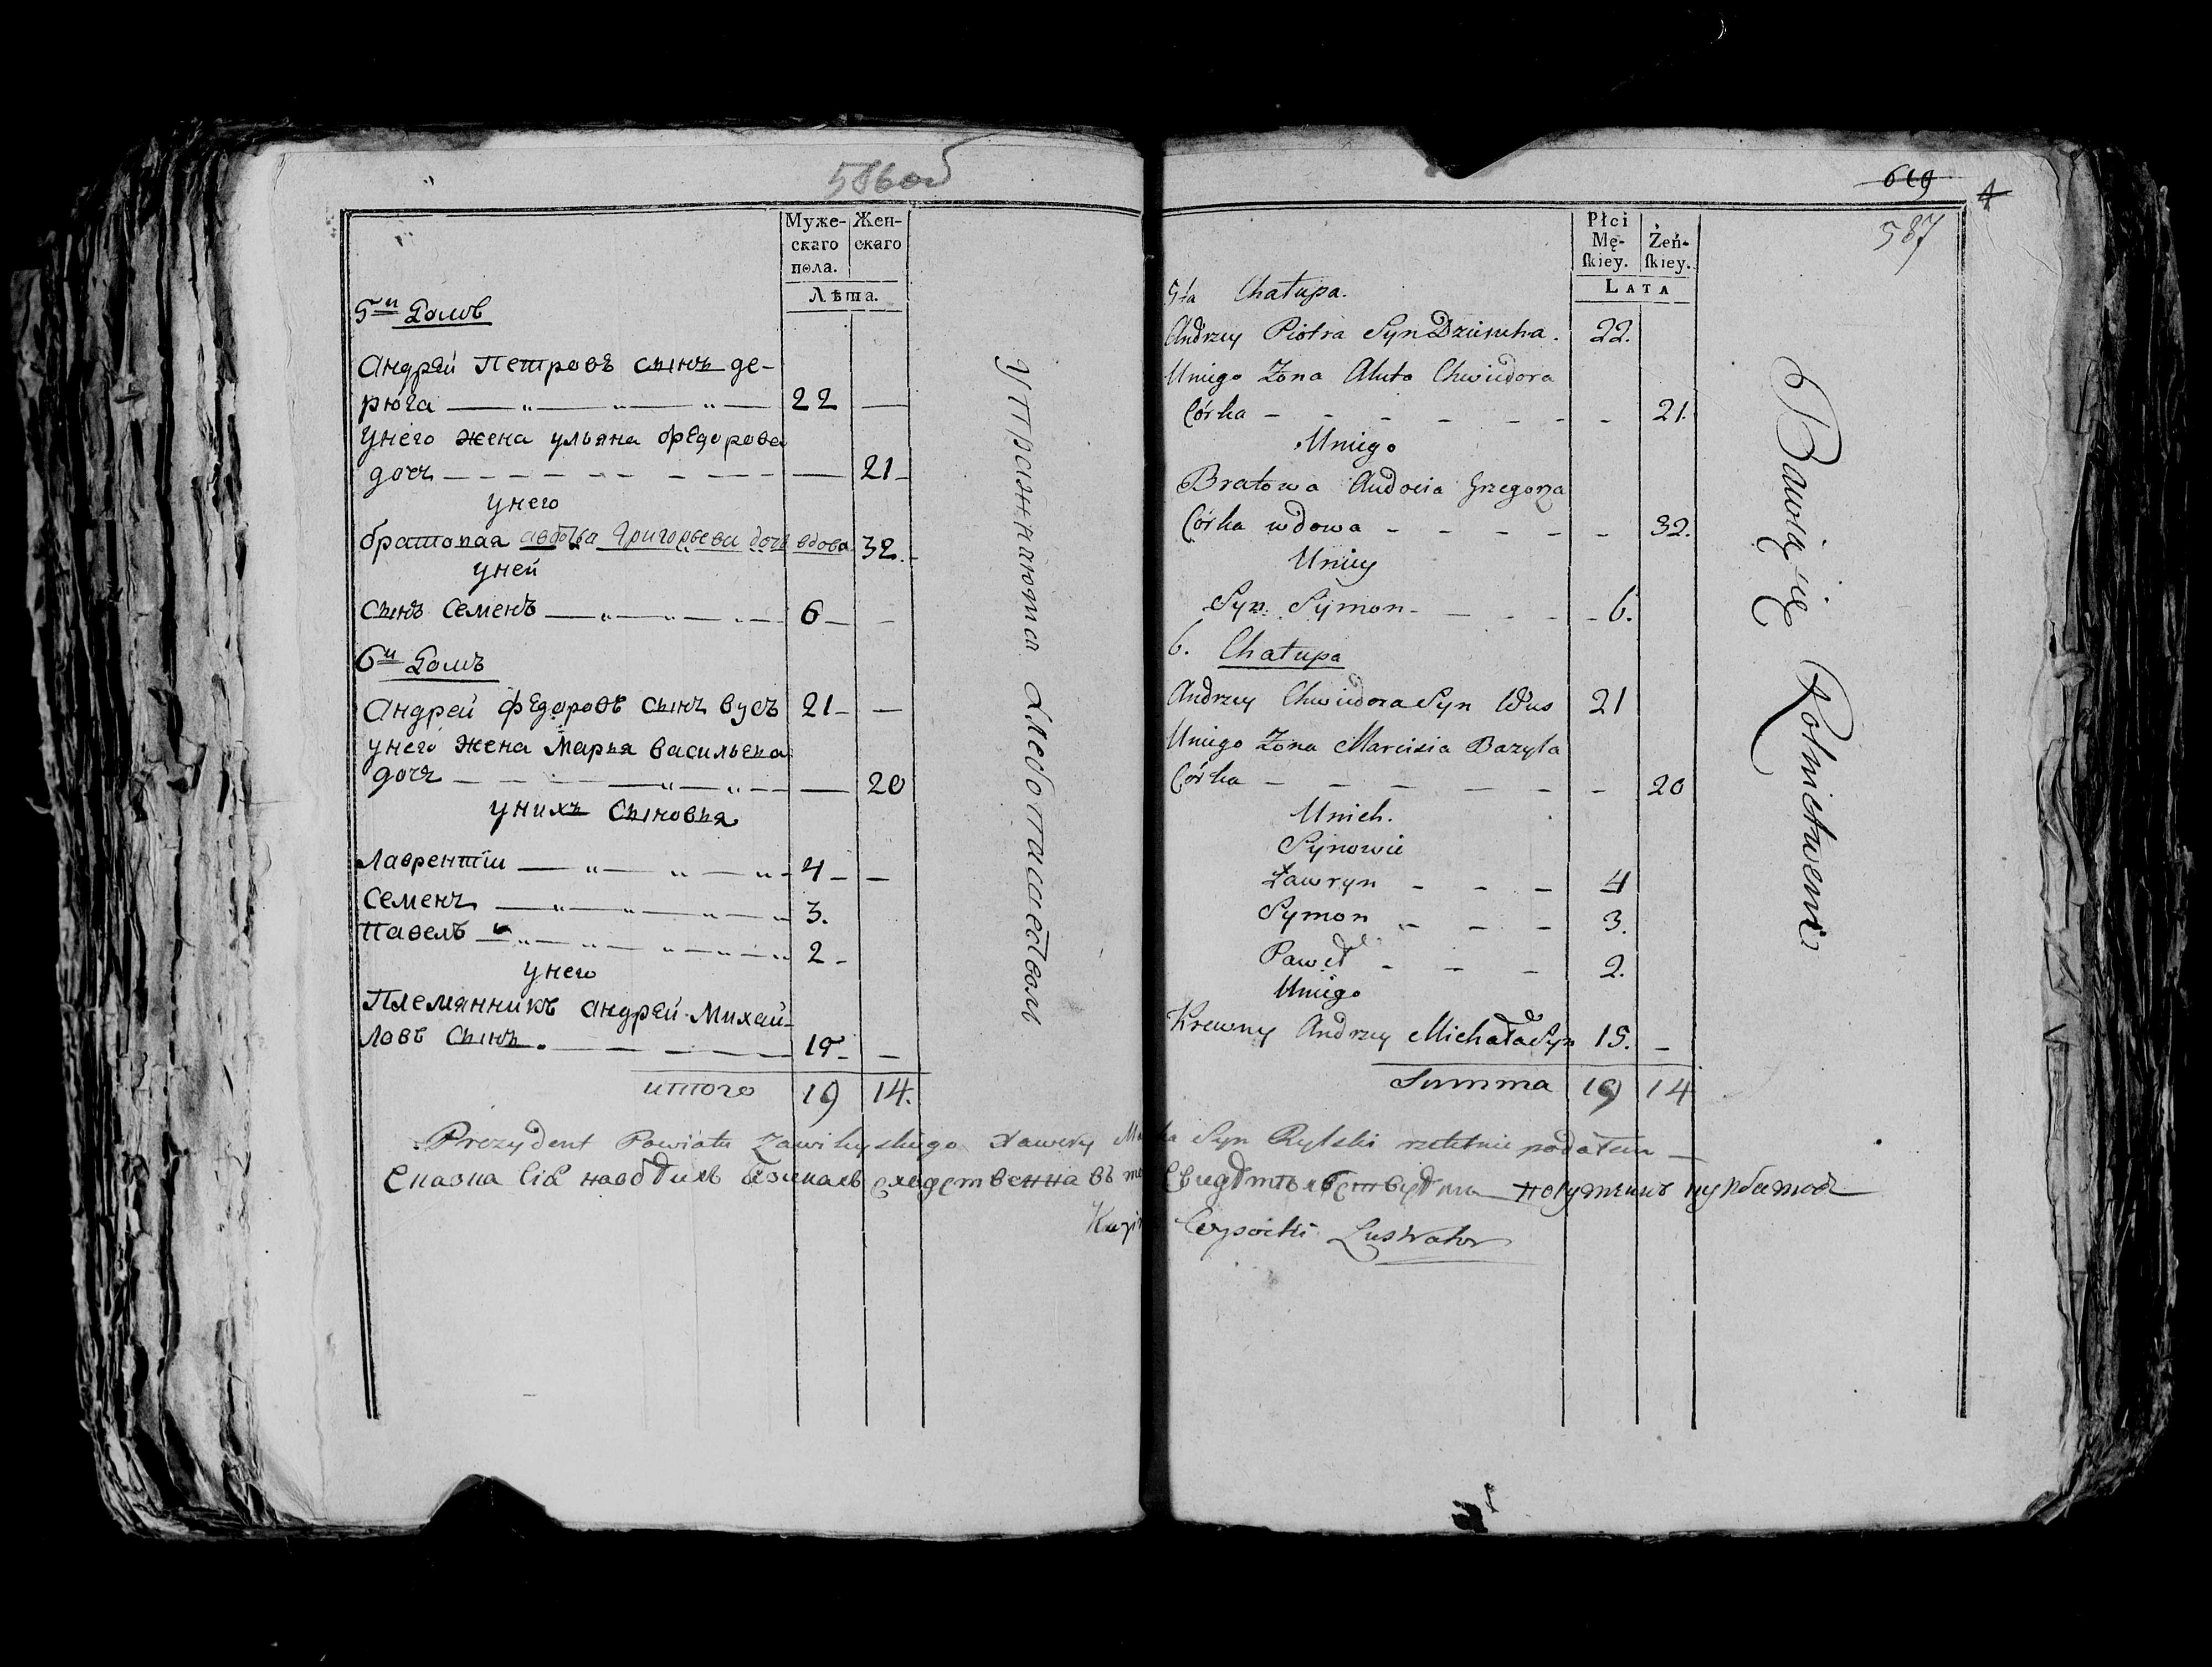 586об
Муже-
скаго
пола.
Жен-
скаго
Лѣта.
5й Домъ
Андрей Петровъ сынъ де-
рюга 22
Унего жена ульяна Федорова
дочь 21
Унего
братовая авдотья Григорьева дочь вдова 32
Уней
сынъ Семенъ 6
6й Домъ
Андрей Федоровъ сынъ вусъ 21
унего жена Марья васильева
дочь 20
унихъ Сыновья
Лаврентiи 4
Семенъ 3.
Павелъ 2
Унего
Племянникъ андрей Михай-
ловъ Сынъ 15
итого 19 14.
Упражняются
619
4
587
Płci
Mę-
ſkiey.
Żeń-
ſkiey.
LATA
5ta Chałupa.
Andrzey Piotra Syn 22.
Uniego Żona Chwiedora
Córka 21.
Uniego
Bratowa Audocia Grzegorza
Córka wdowa 32.
Uniey
Syn Symon 6.
6. Chałupa
Andrzey Chwiedora Syn Wus 21
Uniego Żona Marcisia Bazyla
Córka 20
Unich.
Synowie
Ławryn 4
Symon 3.
Paweł 2.
Uniego
Krewny Andrzey Michała Syn 15.
Summa 19 14
Bawią się Rolnictwem
Prezydent Powiatu Xawery Syn Rylski rzetelnie podałem
Сказка сiя
Lustrator